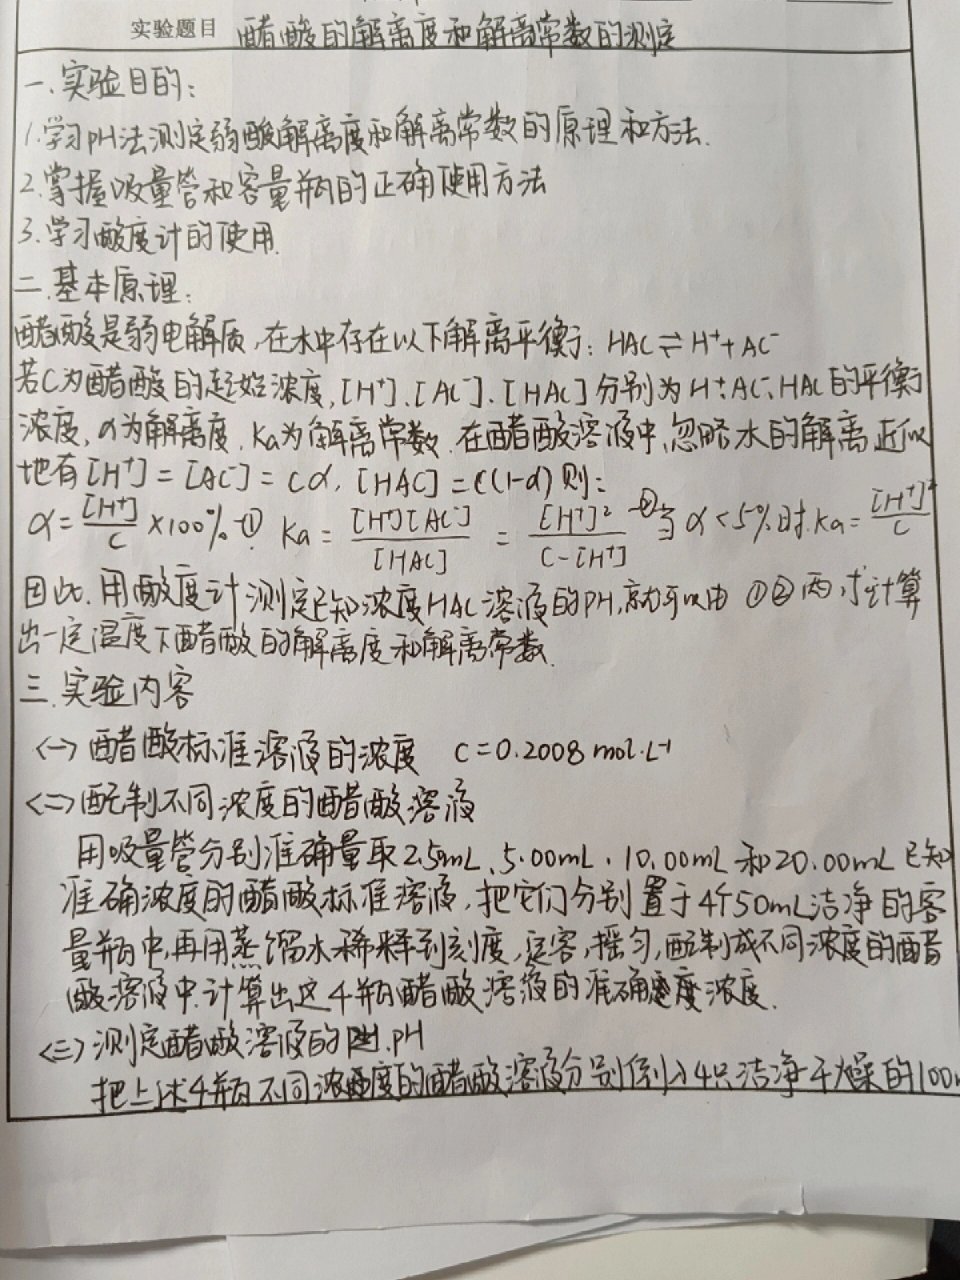 实验题目 醋酸的解离度和解离常数的测定
一.实验目的:
1.学习pH法测定弱酸解离度和解离常数的原理和方法.
2.掌握吸量管和容量瓶的正确使用方法
3.学习酸度计的使用.
二.基本原理:
醋酸是弱电解质,在水中存在以下解离平衡:HAC⇌H⁺+AC⁻
若C为醋酸的起始浓度,[H⁺].[AC⁻].[HAC]分别为H⁺.AC⁻.HAC的平衡
浓度,α为解离度.Ka为解离常数.在醋酸溶液中,忽略水的解离近似
地有[H⁺]=[AC⁻]=Cα,[HAC]=C(1-α)则:
α=[H⁺]/C×100% ① Ka=[H⁺][AC⁻]/[HAC]=[H⁺]²/C-[H⁺] ② 当α<5%时.Ka=[H⁺]²/C
因此.用酸度计测定已知浓度HAC溶液的PH,就可以由①②两式计算
出一定温度下醋酸的解离度和解离常数.
三.实验内容
<一>醋酸标准溶液的浓度 C=0.2008mol·L⁻¹
<二>配制不同浓度的醋酸溶液
用吸量管分别准确量取2.5mL、5.00mL.10.00mL和20.00mL已知
准确浓度的醋酸标准溶液,把它们分别置于4个50mL洁净的容
量瓶中,再用蒸馏水稀释到刻度,定容,摇匀,配制成不同浓度的醋
酸溶液中.计算出这4瓶醋酸溶液的准确浓度.
<三>测定醋酸溶液的.pH
把上述4瓶不同浓度的醋酸溶液分别倒入4只洁净干燥的100m